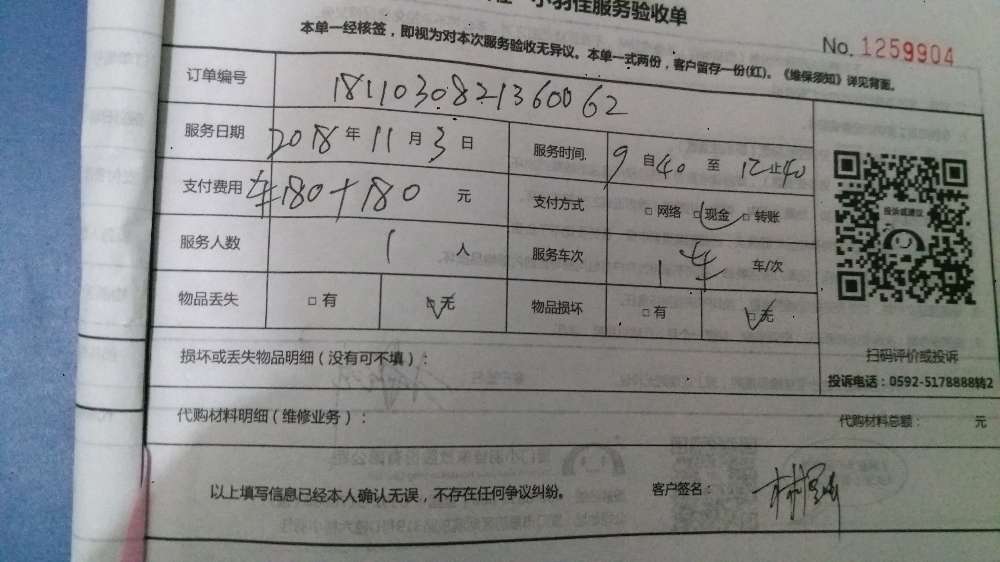 小羽佳服务验收单
No. 1259904
本单一经核签，即视为对本次服务验收无异议。本单一式两份，客户留存一份(红)。《维保须知》详见背面。
订单编号 1811030821360062
服务日期 2018年11月3日 服务时间: 9自40至12止40
支付费用 车180+180元 支付方式 □网络 □现金 □转账
服务人数 1人 服务车次 1车 车/次
物品丢失 □有 □无 物品损坏 □有 □无
投诉或建议
扫码评价或投诉
损坏或丢失物品明细（没有可不填）:
投诉电话：0592-5178888转2
代购材料明细（维修业务）: 代购材料总额： 元
以上填写信息已经本人确认无误，不存在任何争议纠纷。 客户签名：